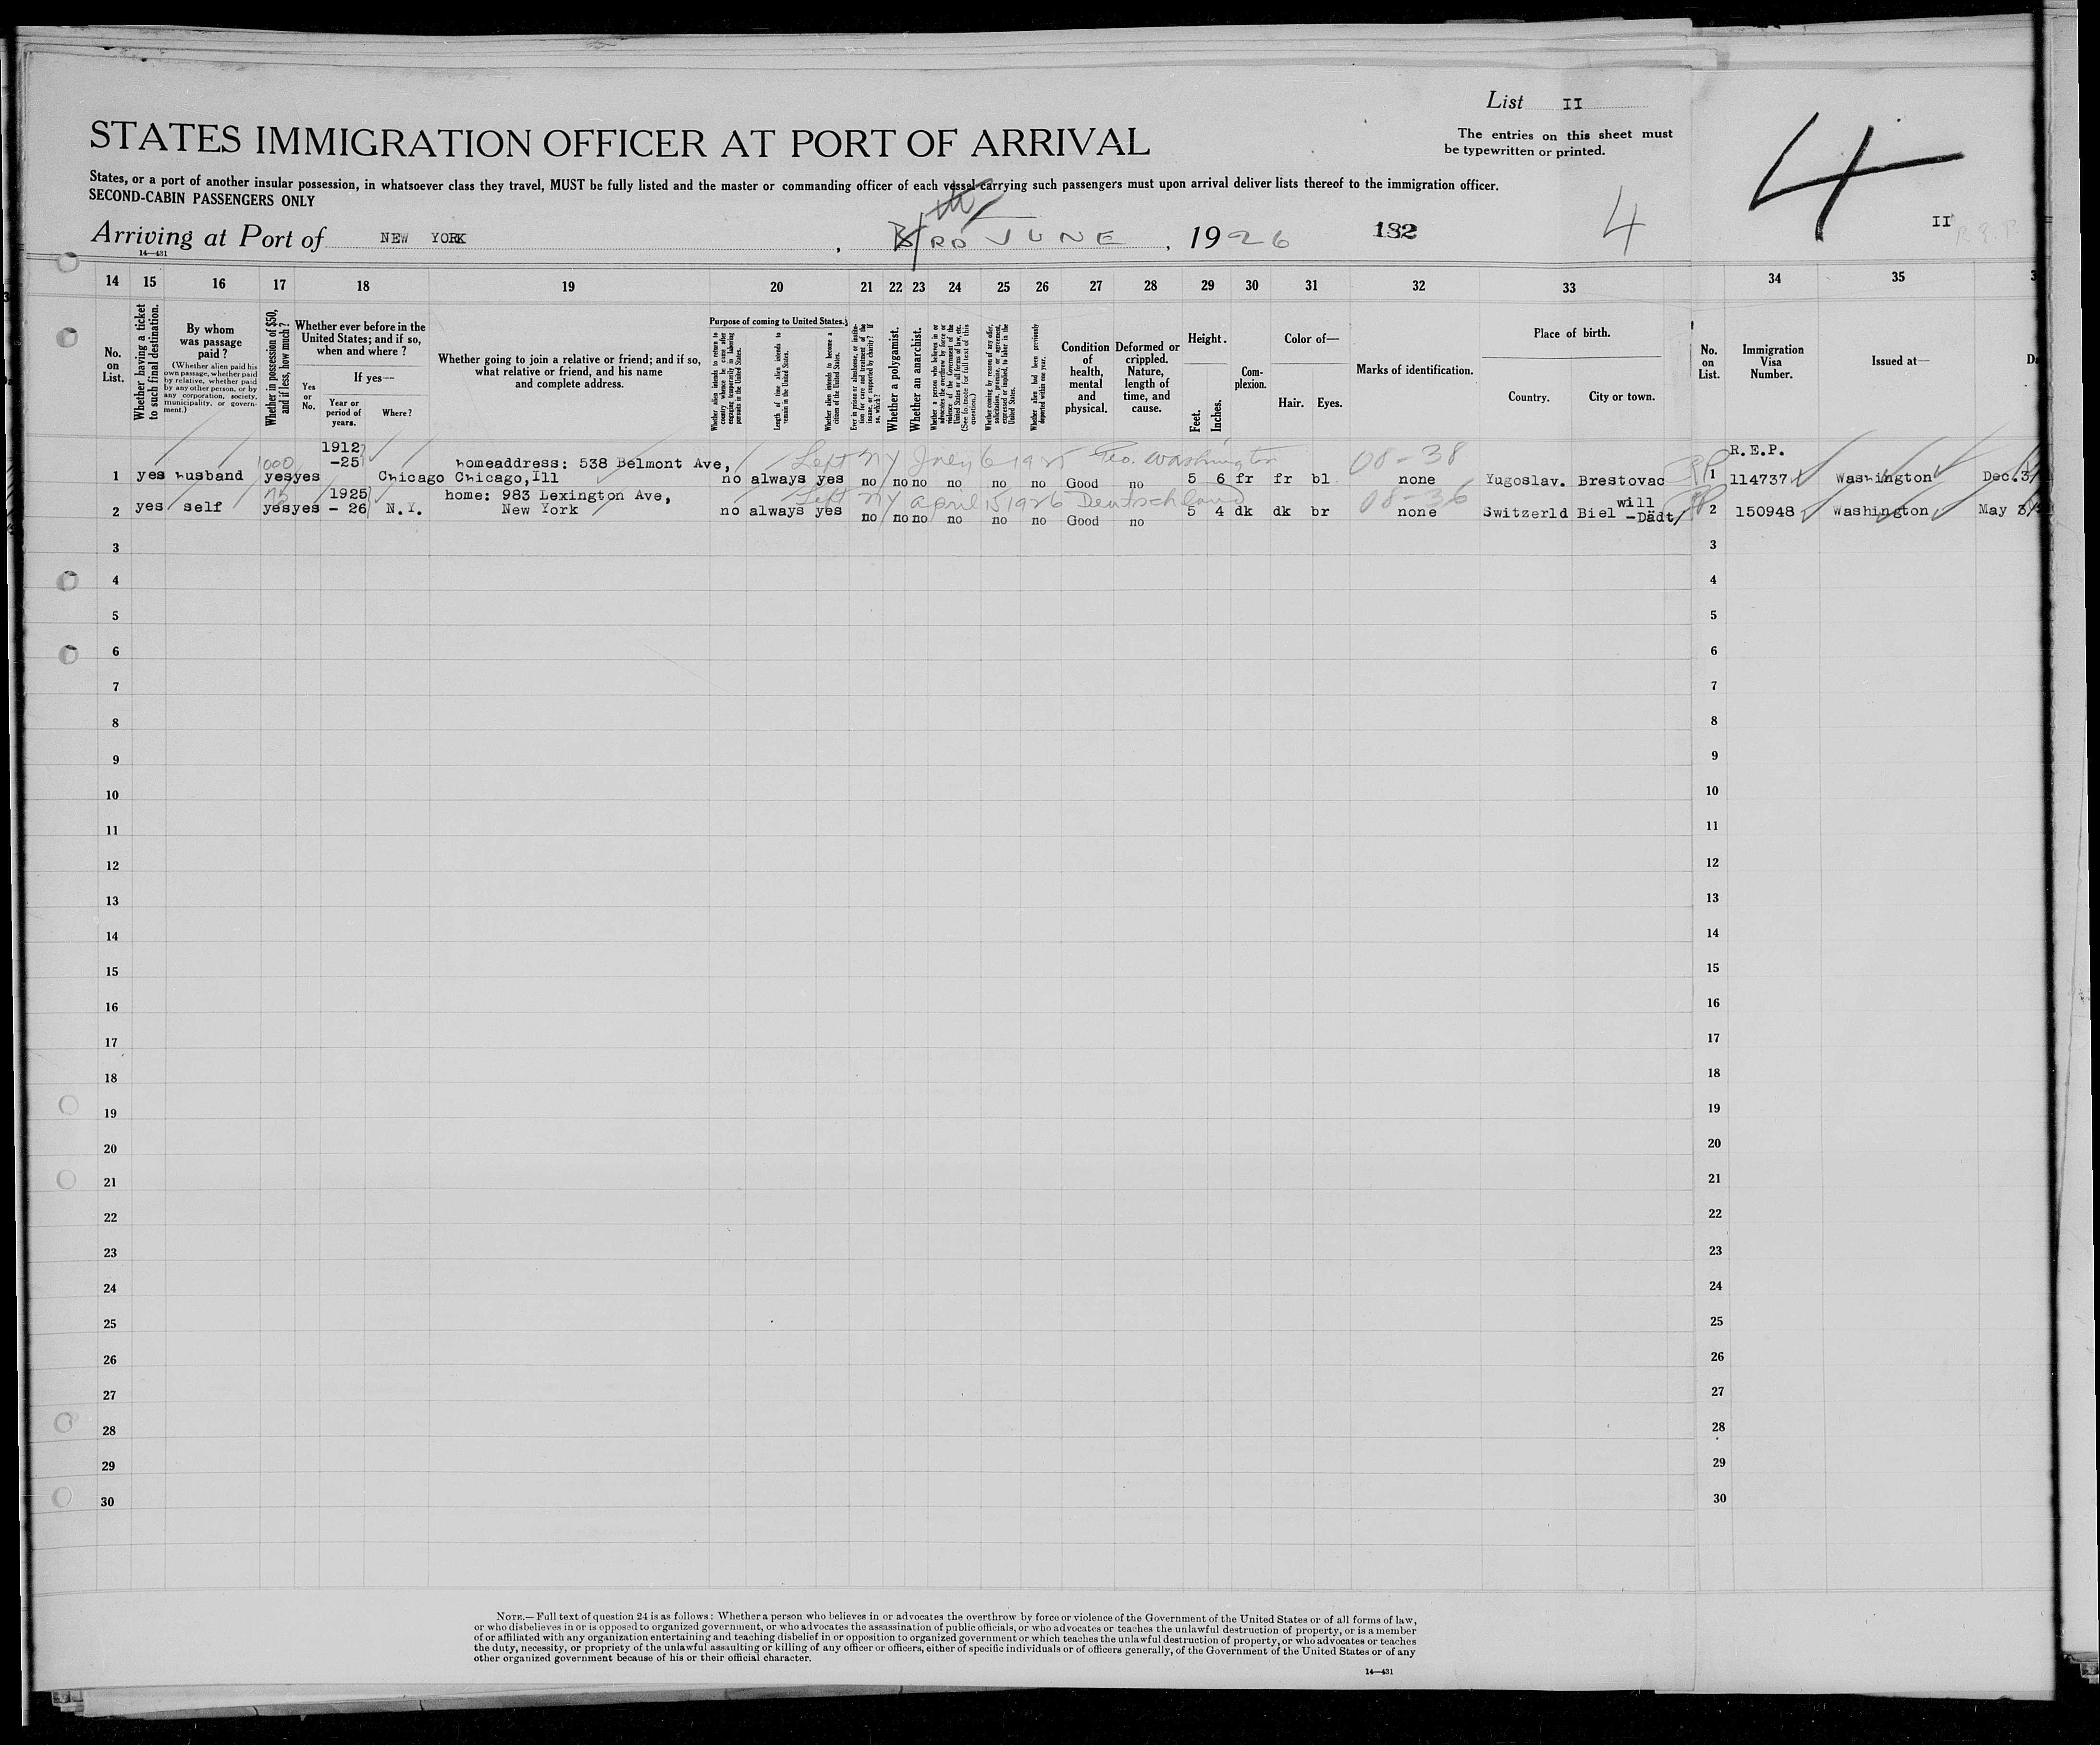 List II
The entries on this sheet must
be typewritten or printed.
STATES IMMIGRATION OFFICER AT PORT OF ARRIVAL
4
States, or a port of another insular possession, in whatsoever class they travel, MUST be fully listed and the master or commanding officer of each vessel carrying such passengers must upon arrival deliver lists thereof to the immigration officer.
SECOND-CABIN PASSENGERS ONLY
Arriving at Port of NEW YORK, 4th RD JUNE, 1926 182 4 II
14—431
14 15 16 17 18 19 20 21 22 23 24 25 26 27 28 29 30 31 32 33 34 35
No. on List.
Whether having a ticket to such final destination.
By whom was passage paid?
(Whether alien paid his own passage, whether paid by relative, whether paid by any other person, or by any corporation, society, municipality, or government.)
Whether in possession of $50, and if less, how much?
Whether ever before in the United States; and if so, when and where?
Yes or No.
If yes—
Year or period of years.
Where?
Whether going to join a relative or friend; and if so, what relative or friend, and his name and complete address.
Purpose of coming to United States.
Whether alien intends to return to country whence he came after engaging temporarily in laboring pursuits in the United States.
Length of time alien intends to remain in the United States.
Whether alien intends to become a citizen of the United States.
Ever in prison or almshouse, or institution for care and treatment of the insane, or supported by charity? If so, which?
Whether a polygamist.
Whether an anarchist.
Whether a person who believes in or advocates the overthrow by force or violence of the Government of the United States or all forms of law, etc. (See footnote for full text of this question.)
Whether coming by reason of any offer, solicitation, promise, or agreement, expressed or implied, to labor in the United States.
Whether alien had been previously deported within one year.
Condition of health, mental and physical.
Deformed or crippled. Nature, length of time, and cause.
Height.
Feet.
Inches.
Complexion.
Color of—
Hair. Eyes.
Marks of identification.
Place of birth.
Country. City or town.
No. on List.
Immigration Visa Number.
Issued at—
1912
-25
1000
homeaddress: 538 Belmont Ave,
Left NY July 6 1925 Geo. Washington 08-38
R.E.P.
1 yes husband yes yes Chicago Chicago, Ill no always yes no no no no no no Good no 5 6 fr fr bl none Yugoslav. Brestovac 1 114737 Washington Dec.3
1925
home: 983 Lexington Ave,
Left NY April 15 1926 Deutschland 08-36
will
2 yes self yes yes - 26 N.Y. New York no always yes no no no no no no Good no 5 4 dk dk br none Switzerld Biel -Dädt/ 2 150948 Washington May
3 3
4 4
5 5
6 6
7 7
8 8
9 9
10 10
11 11
12 12
13 13
14 14
15 15
16 16
17 17
18 18
19 19
20 20
21 21
22 22
23 23
24 24
25 25
26 26
27 27
28 28
29 29
30 30
NOTE.—Full text of question 24 is as follows: Whether a person who believes in or advocates the overthrow by force or violence of the Government of the United States or of all forms of law,
or who disbelieves in or is opposed to organized government, or who advocates the assassination of public officials, or who advocates or teaches the unlawful destruction of property, or is a member
of or affiliated with any organization entertaining and teaching disbelief in or opposition to organized government or which teaches the unlawful destruction of property, or who advocates or teaches
the duty, necessity, or propriety of the unlawful assaulting or killing of any officer or officers, either of specific individuals or of officers generally, of the Government of the United States or of any
other organized government because of his or their official character.
14—431